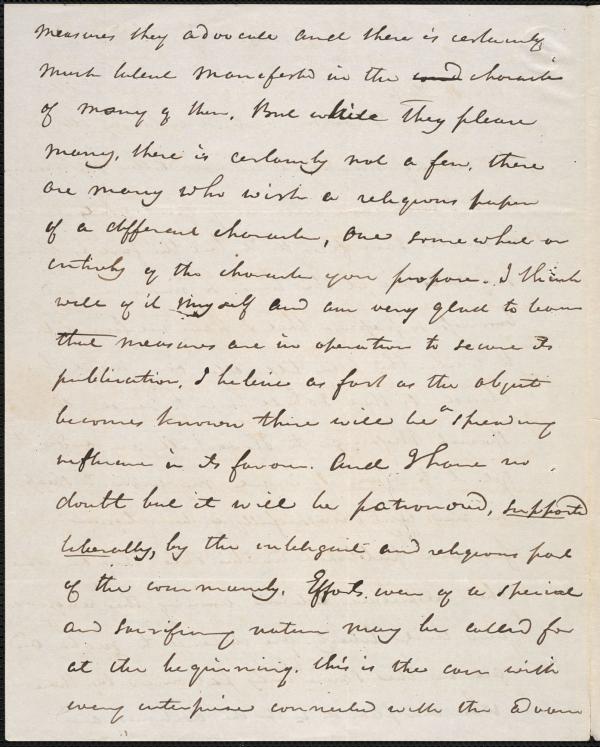 measures they advocate and there is certainly
much talent manifested in the character
of many of them. But while they please
many, there is certainly not a few, there
are many who wish a religious paper
of a different character, one somewhat or
entirely of the character you propose. I think
well of it myself and am very glad to learn
that measures are in operation to secure its
publication. I believe as fast as the object
becomes known there will be a spreading
influence in its favour. And I have no
doubt but it will be patronised, supported
liberally, by the intelligent and religious part
of the community. Efforts even of a special
and sacrificing nature may be called for
at the beginning. this is the case with
every enterprise connected with the advance